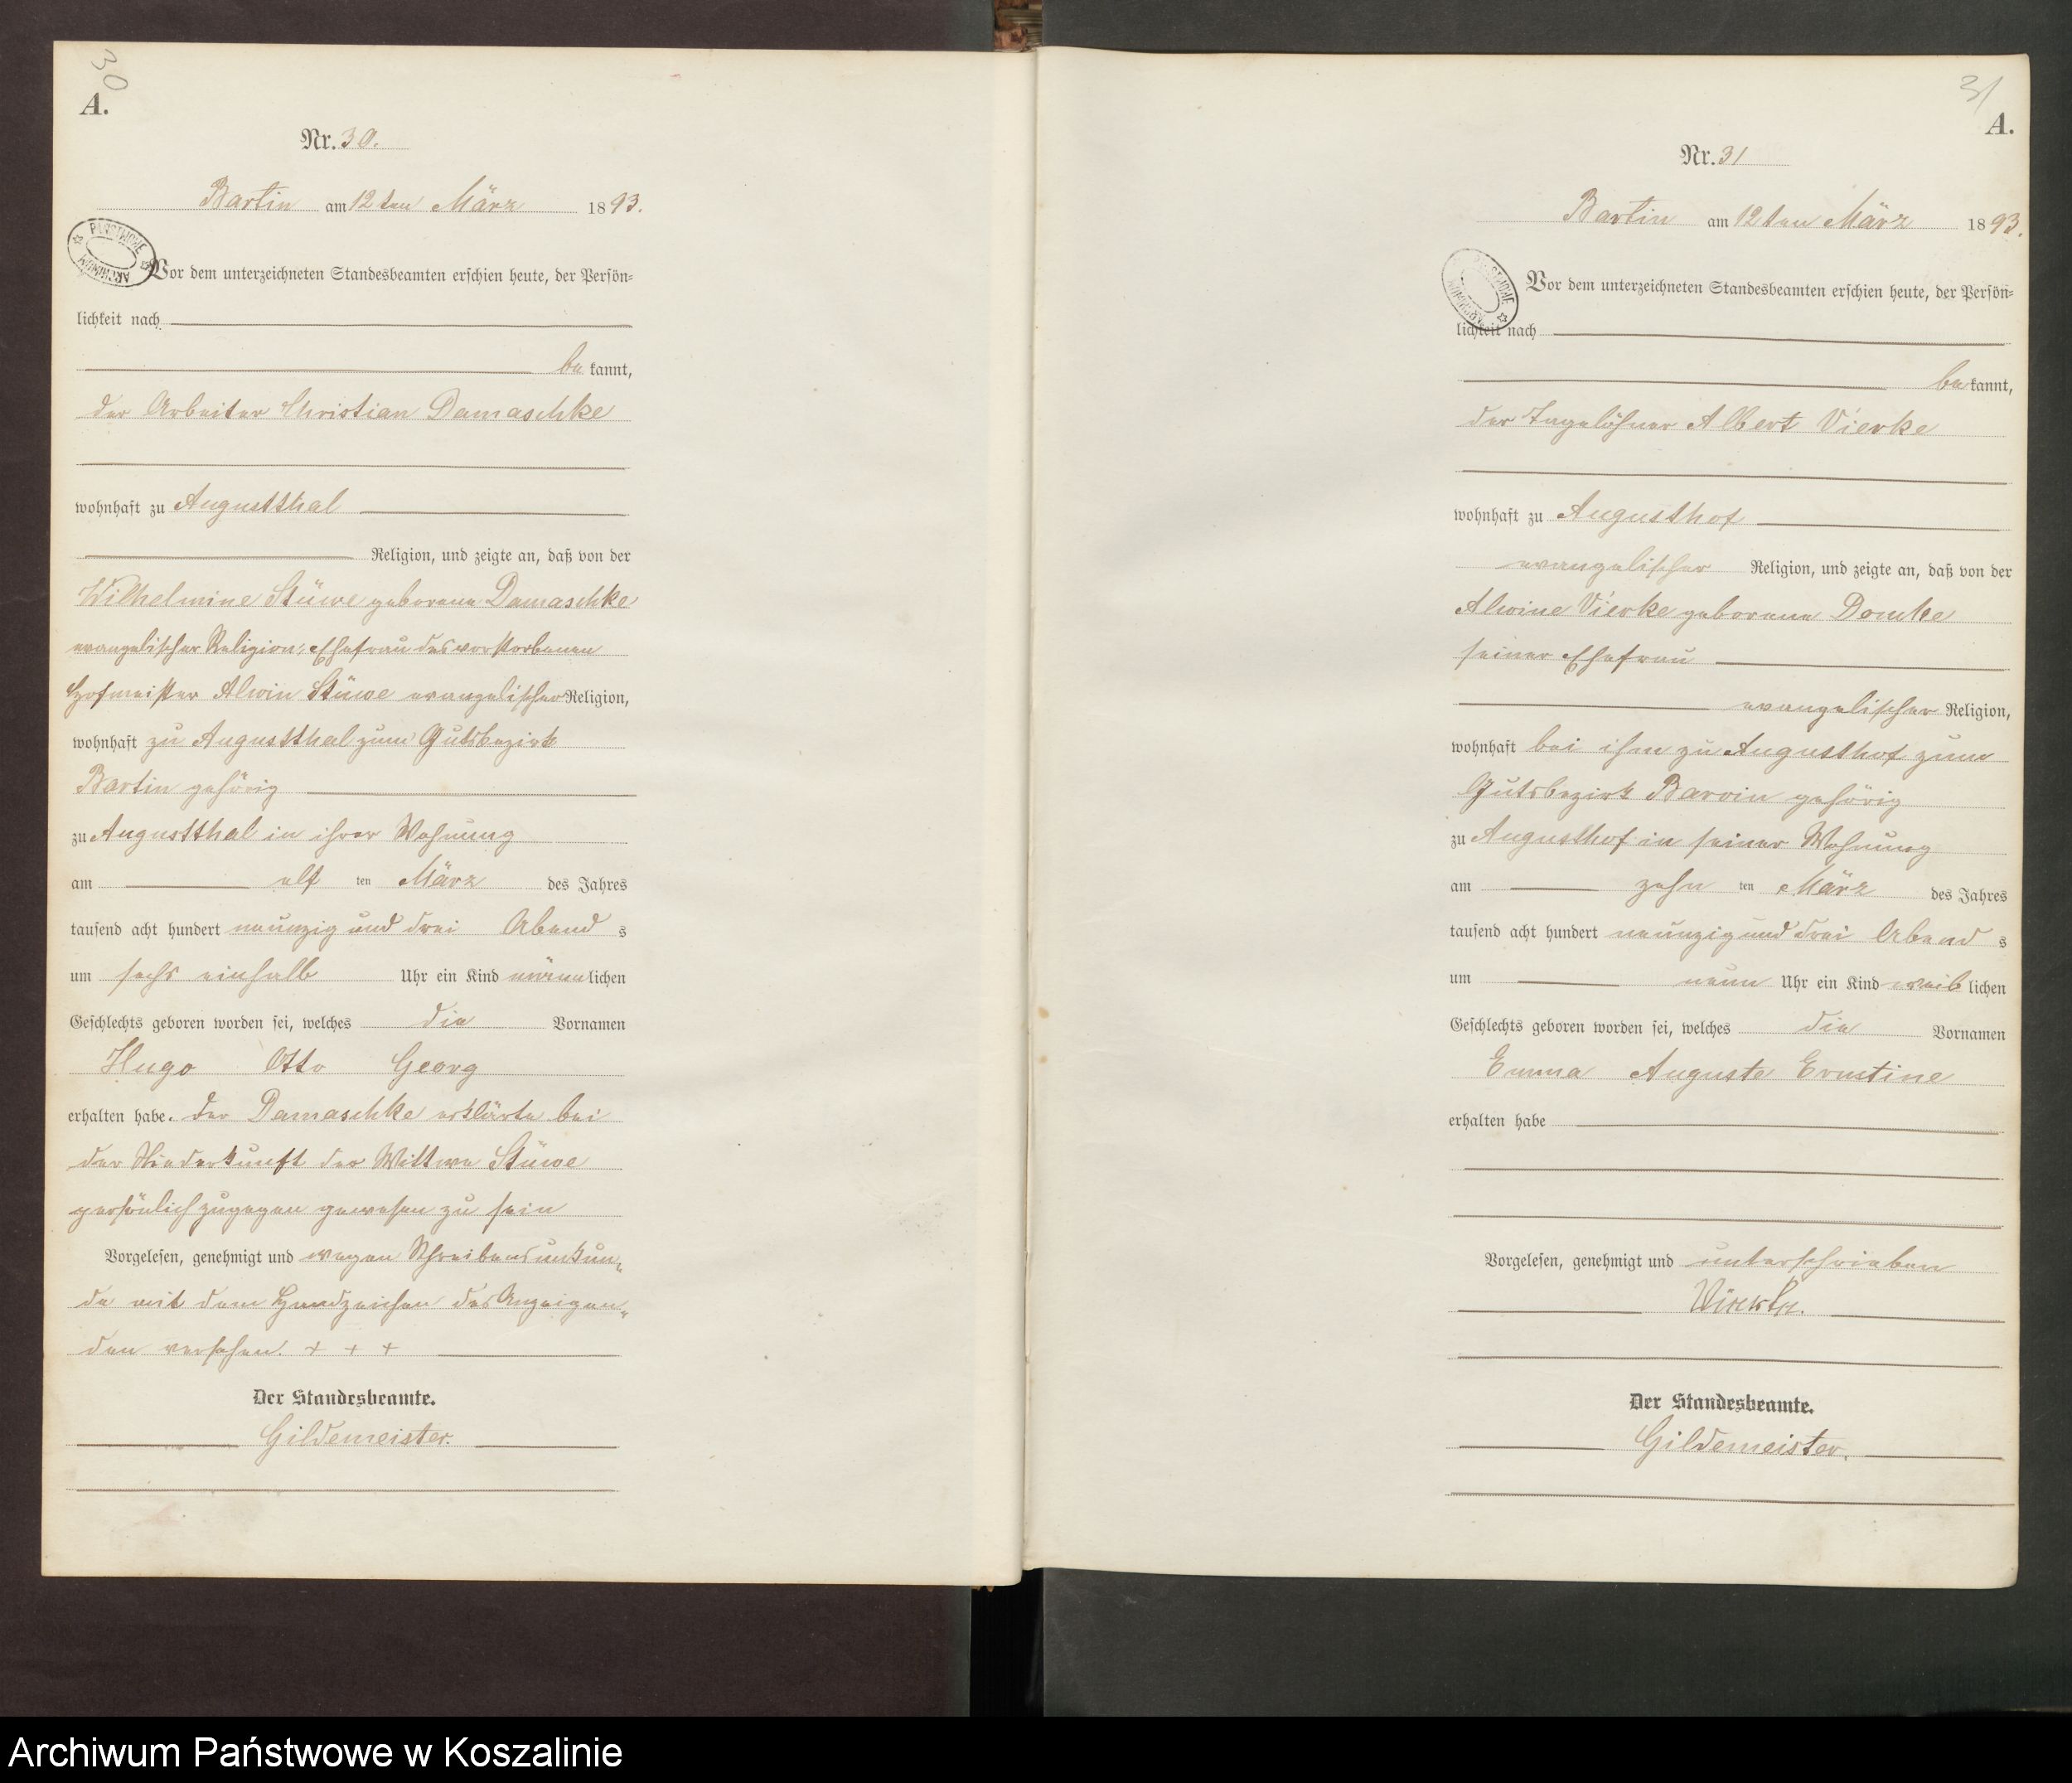 30
A.
Nr. 30.
Bartin am 12ten März 1893.
Vor dem unterzeichneten Standesbeamten erschien heute, der Persön=
lichkeit nach
be kannt,
der Arbeiter Christian Damaschke
wohnhaft zu Augustthal
Religion, und zeigte an, daß von der
Wilhelmine Stüwe geborene Damaschke
evangelischer Religion, Ehefrau des verstorbenen
Hofmeister Alwin Stüwe evangelischer Religion,
wohnhaft zu Augustthal zum Gutsbezirk
Bartin gehörig
zu Augustthal in ihrer Wohnung
am elf ten März des Jahres
tausend acht hundert neunzig und drei Abend s
um sechs einhalb Uhr ein Kind männlichen
Geschlechts geboren worden sei, welches die Vornamen
Hugo Otto Georg
erhalten habe. Der Damaschke erklärte bei
der Niederkunft der Wittwe Stüwe
persönlich zugegen gewesen zu sein
Vorgelesen, genehmigt und wegen Schreibensunkun„
de mit dem Handzeichen des Anzeigen„
den versehen. + + +
Der Standesbeamte.
Gildemeister.
31
A.
Nr. 31
Bartin am 12ten März 1893.
Vor dem unterzeichneten Standesbeamten erschien heute, der Persön=
lichkeit nach
be kannt,
der Tagelöhner Albert Vierke
wohnhaft zu Augusthof
evangelischer Religion, und zeigte an, daß von der
Alwine Vierke geborene
seiner Ehefrau
evangelischer Religion,
wohnhaft bei ihm zu Augusthof zum
Gutsbezirk Barvin gehörig
zu Augusthof in seiner Wohnung
am zehn ten März des Jahres
tausend acht hundert neunzig und drei Abend s
um neun Uhr ein Kind weiblichen
Geschlechts geboren worden sei, welches die Vornamen
Emma Auguste Ernstine
erhalten habe
Vorgelesen, genehmigt und unterschrieben
Vierke.
Der Standesbeamte.
Gildemeister.
Archiwum Państwowe w Koszalinie